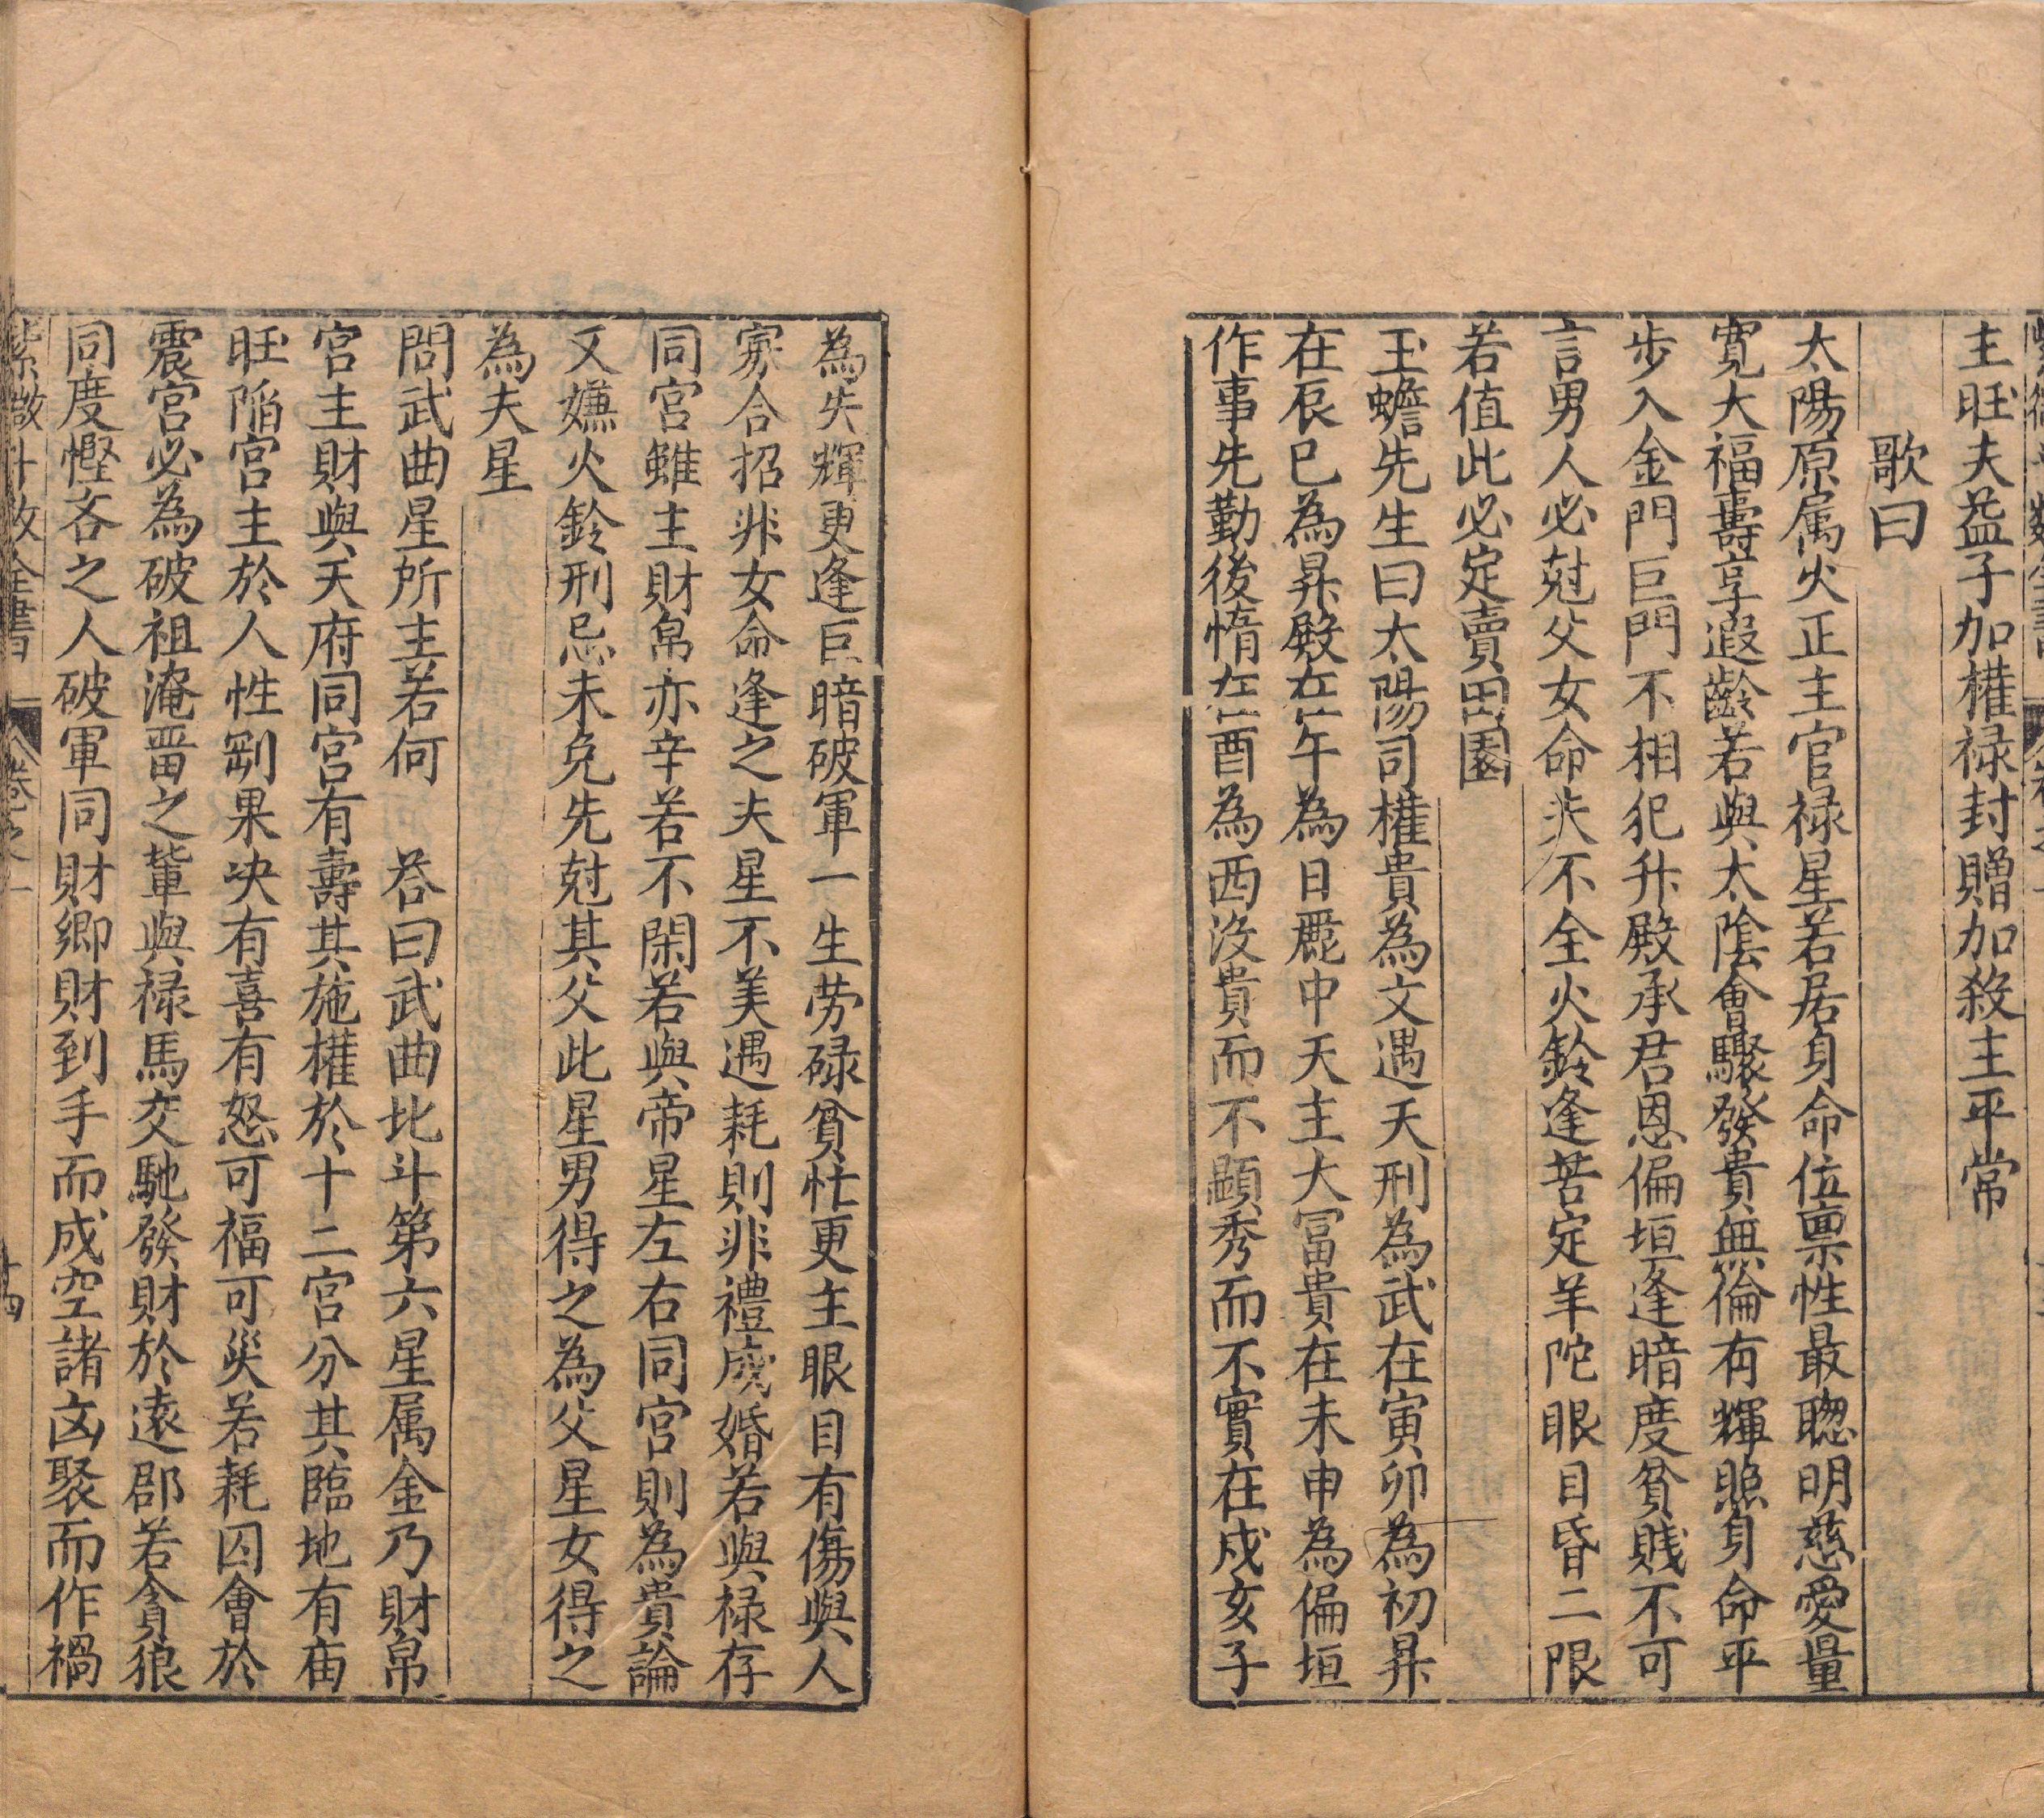 主旺夫益子加權禄封贈加殺主平常
歌曰
太陽原属火正主官禄星若居身命位禀性最聦明慈愛量
寛大福壽享遐齡若與太陰會驟發貴無倫有輝照身命平
步入金門巨門不相犯升殿承君恩偏垣逢暗度貧賎不可
言男人必尅父女命夫不全火鈴逢苦定羊陀眼目昏二限
若值此必定賣田園
玉蟾先生曰太陽司權貴為文遇天刑為武在寅卯為初昇
在辰巳為昇殿在午為日麗中天主大冨貴在未申為偏垣
作事先勤後惰在酉為西没貴而不顯秀而不實在戍亥子
為失輝更逢巨暗破軍一生劳碌貧忙更主眼目有傷與人
寡合招非女命逢之夫星不美遇耗則非禮成婚若與禄存
同宫雖主財帛亦辛苦不閑若與帝星左右同宫則為貴論
又嫌火鈴刑忌未免先尅其父此星男得之為父星女得之
為夫星
問武曲星所主若何　荅曰武曲北斗第六星属金乃財帛
宫主財與天府同宫有壽其施權於十二宫分其臨地有庙
旺陷宫主於人性剛果决有喜有怒可福可灾若耗囚會於
震宫必為破祖淹畱之輩與禄馬交馳發財於遠郡若貪狼
同度慳吝之人破軍同財鄉財到手而成空諸凶聚而作禍
紫微斗数全書 卷之一 十四